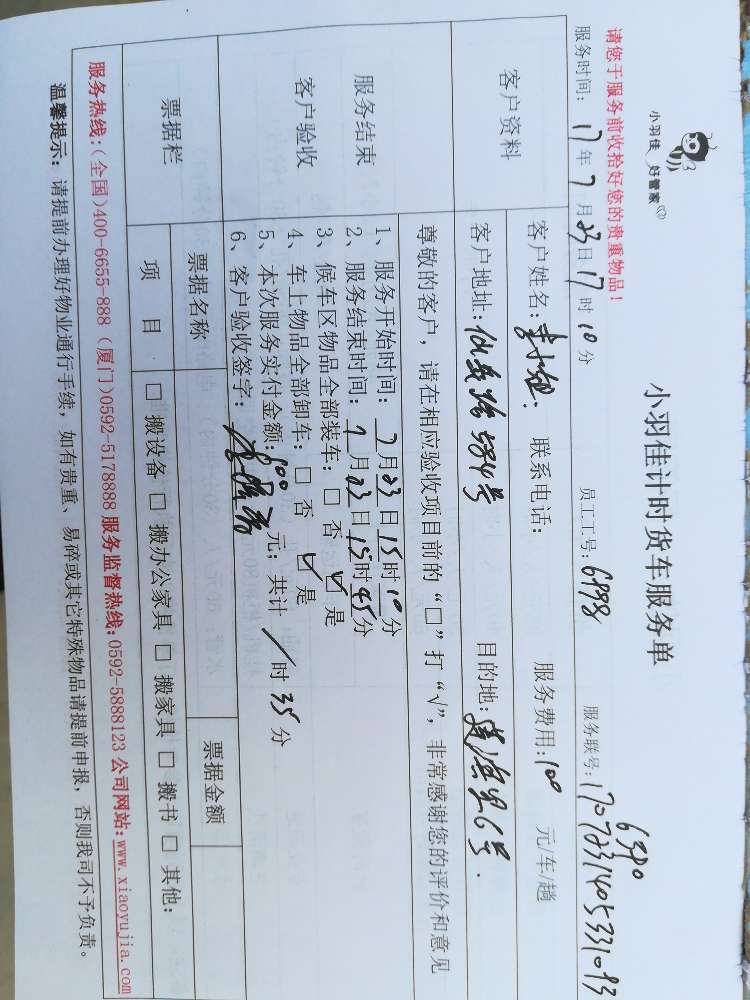 小羽佳 好管家
小羽佳计时货车服务单
请您于服务前收拾好您的贵重物品！
6580
服务时间：17年7月23日17时10分 员工工号：6898 服务联号：1707231405331093
客户资料
客户姓名： 联系电话： 服务费用：100 元/车/趟
客户地址： 584号 目的地： 6号.
尊敬的客户，请在相应验收项目前的“□”打“√”，非常感谢您的评价和意见
服务结束
客户验收
1、服务开始时间：7月23日15时10分
2、服务结束时间：7月23日15时45分
3、候车区物品全部装车：□ 否 ☑ 是
4、车上物品全部卸车：□ 否 ☑ 是
5、本次服务实付金额：100元；共计 / 时35分
6、客户验收签字：
票据栏 票据名称 票据金额
项 目 □ 搬设备 □ 搬办公家具 □ 搬家具 □ 搬书 □ 其他：
服务热线：(全国)400-6655-888 (厦门)0592-5178888 服务监督热线：0592-5888123 公司网站：www.xiaoyujia.com
温馨提示：请提前办理好物业通行手续，如有贵重、易碎或其它特殊物品请提前申报，否则我司不予负责。